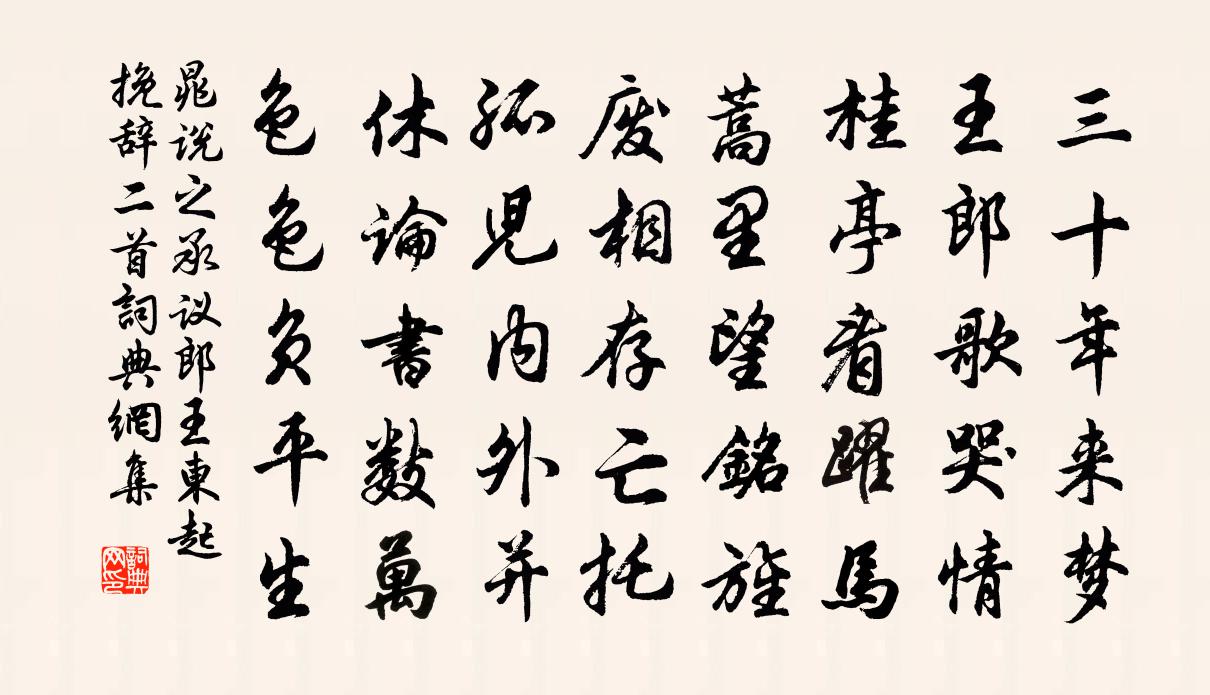 三十年来梦
王郎歌哭情
桂亭看躍馬
蒿里望銘旌
废相存亡托
孤児内外并
休論書数萬
色色負平生
晁说之承议郎王東起
挽辞二首詞典網集
詞典
网印